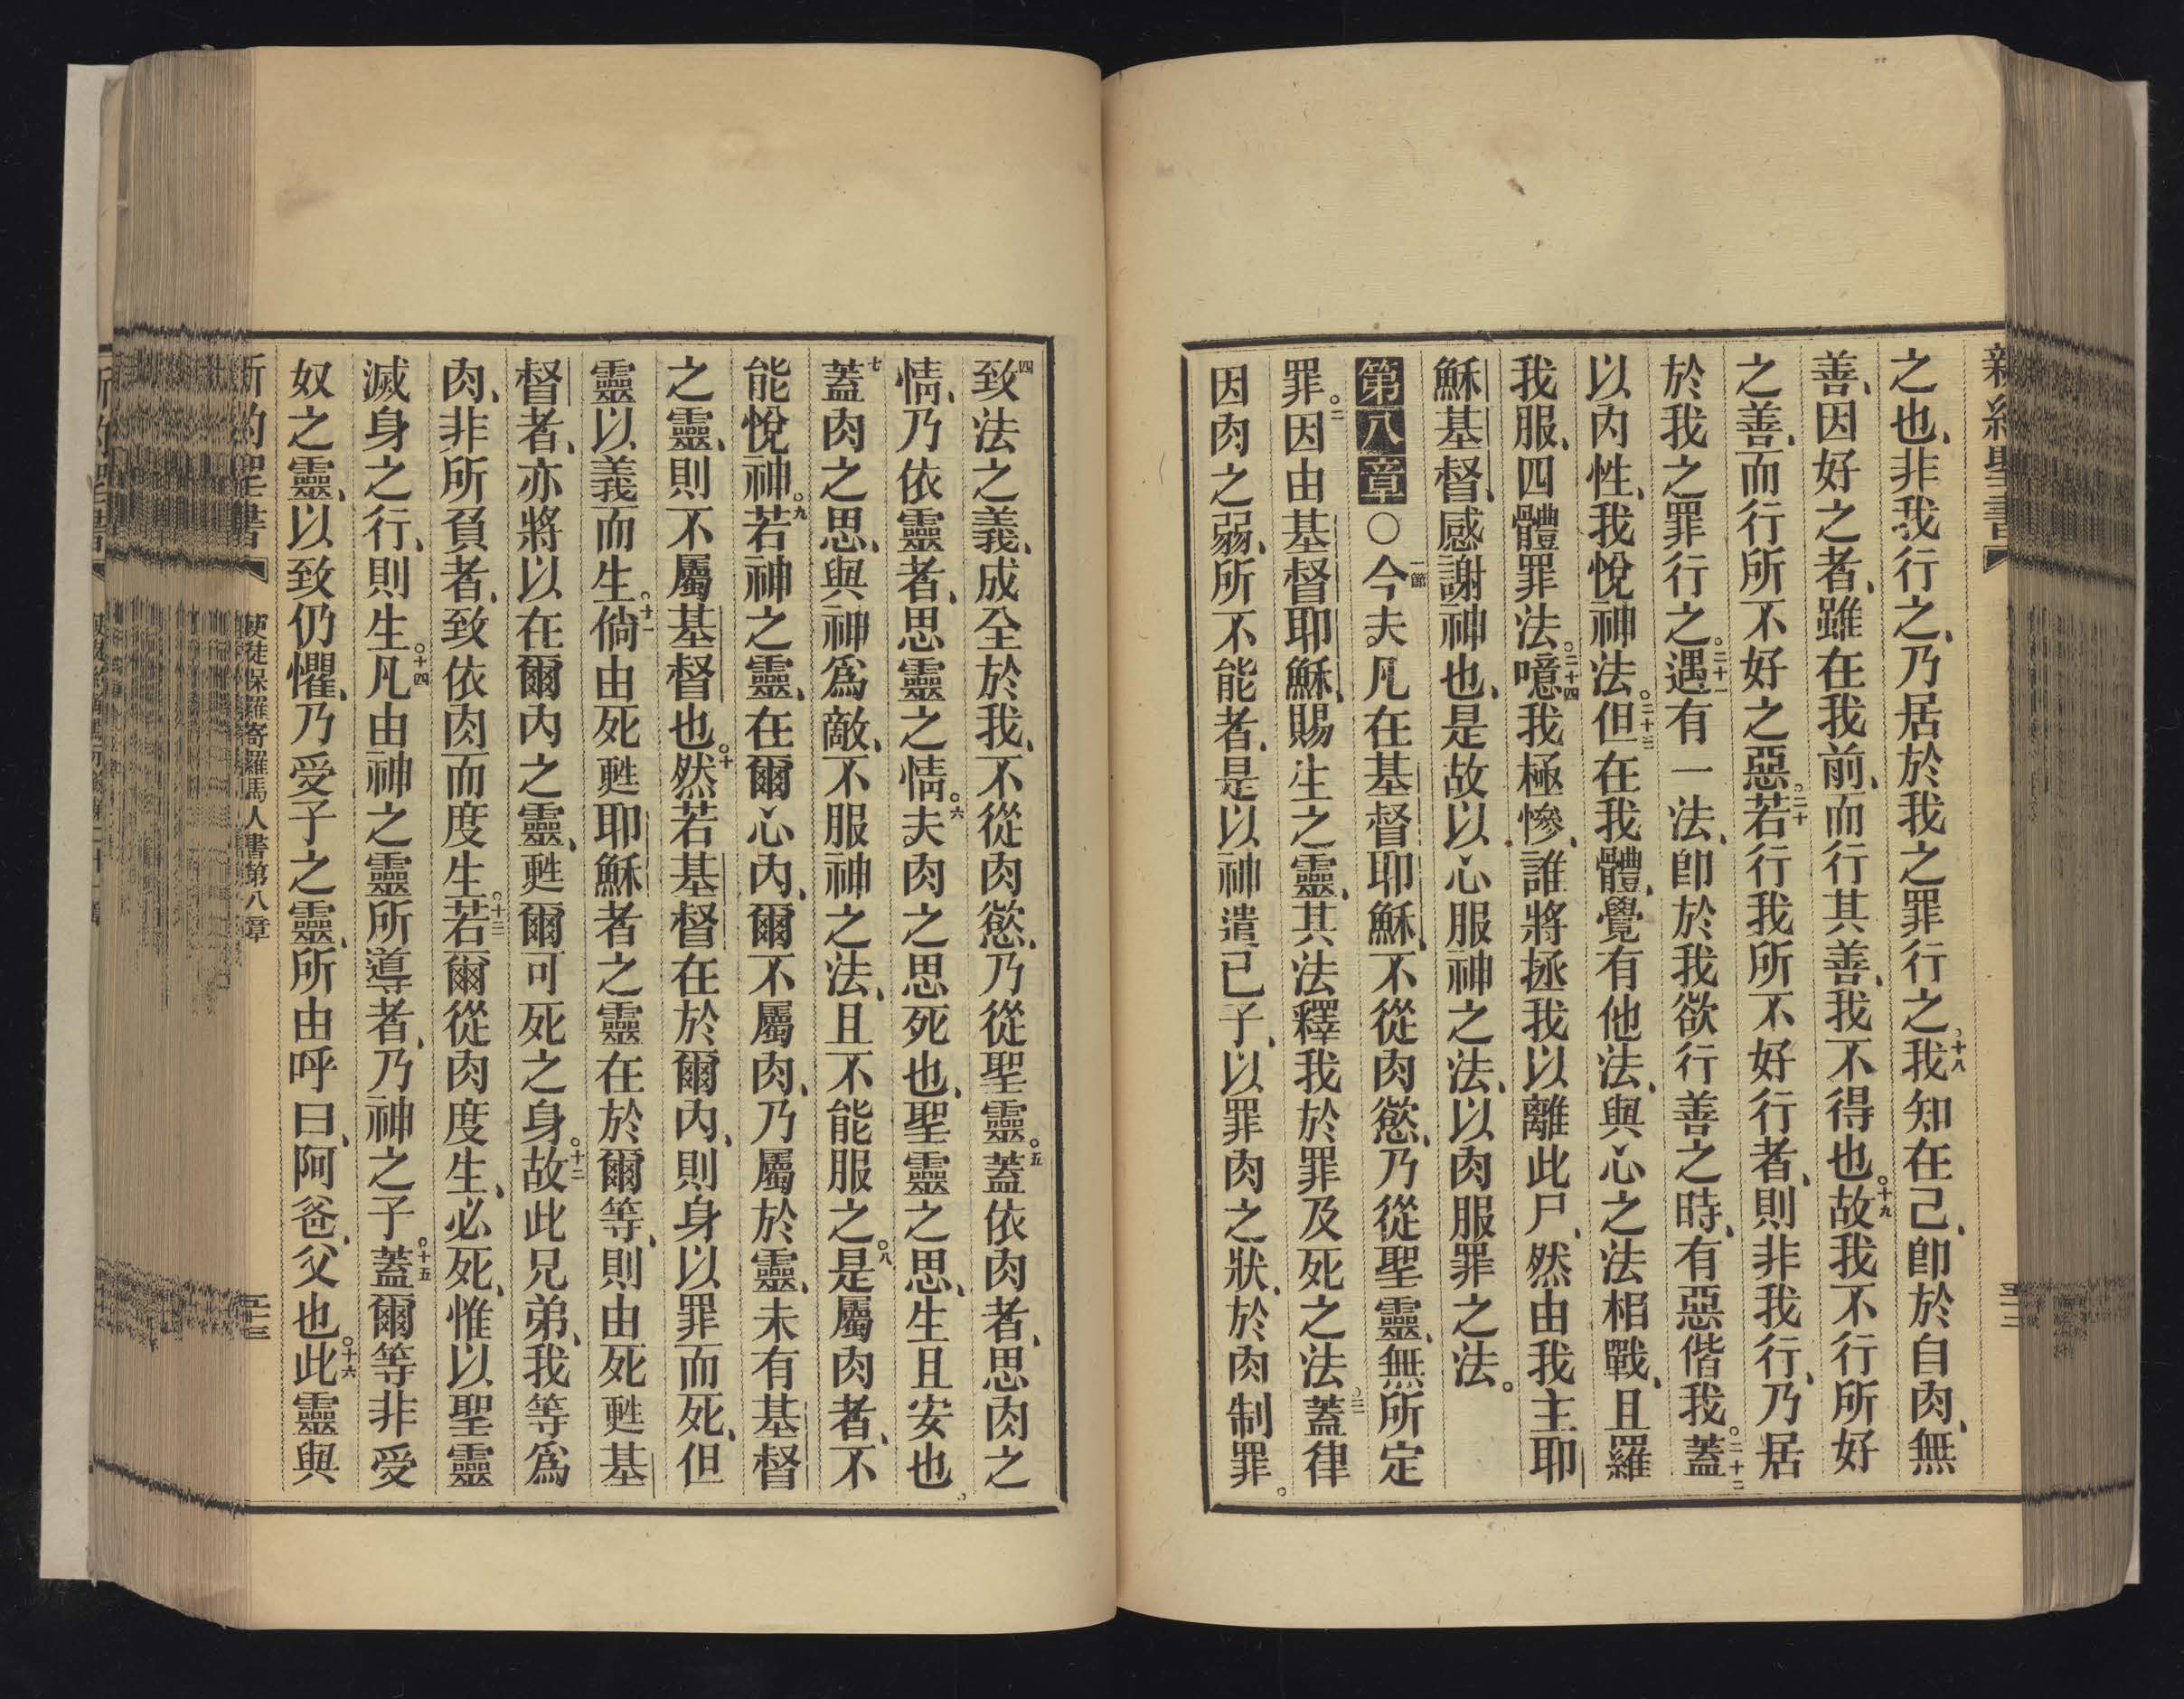 新約聖書
之也、非我行之、乃居於我之罪行之、十八我知在己、卽於自肉、無
善、因好之者、雖在我前、而行其善、我不得也。十九故我不行所好
之善、而行所不好之惡。二十若行我所不好行者、則非我行、乃居
於我之罪行之。二十一遇有一法、卽於我欲行善之時、有惡偕我。二十二蓋
以內性、我悅神法。二十三但在我體、覺有他法、與心之法相戰、且羅
我服、四體罪法。二十四噫我極慘、誰將拯我以離此尸、然由我主耶
穌基督、感謝神也、是故以心服神之法、以肉服罪之法。
第八章○一節今夫凡在基督耶穌、不從肉慾、乃從聖靈、無所定
罪。二因由基督耶穌、賜生之靈、其法釋我於罪及死之法、三蓋律
因肉之弱、所不能者、是以神遣己子、以罪肉之狀、於肉制罪。
四致法之義、成全於我、不從肉慾、乃從聖靈。五蓋依肉者、思肉之
情、乃依靈者、思靈之情。六夫肉之思死也、聖靈之思、生且安也、
七蓋肉之思、與神爲敵、不服神之法、且不能服之。八是屬肉者、不
能悅神。九若神之靈、在爾心內、爾不屬肉、乃屬於靈、未有基督
之靈、則不屬基督也。十然若基督在於爾內、則身以罪而死、但
靈以義而生。十一倘由死甦耶穌者之靈在於爾等、則由死甦基
督者、亦將以在爾內之靈、甦爾可死之身。十二故此兄弟、我等爲
肉、非所負者、致依肉而度生。十三若爾從肉度生、必死、惟以聖靈
滅身之行、則生。十四凡由神之靈所導者、乃神之子。十五蓋爾等非受
奴之靈、以致仍懼、乃受子之靈、所由呼曰、阿爸、父也。十六此靈與
新約聖書 使徒保羅寄羅馬人書第八章